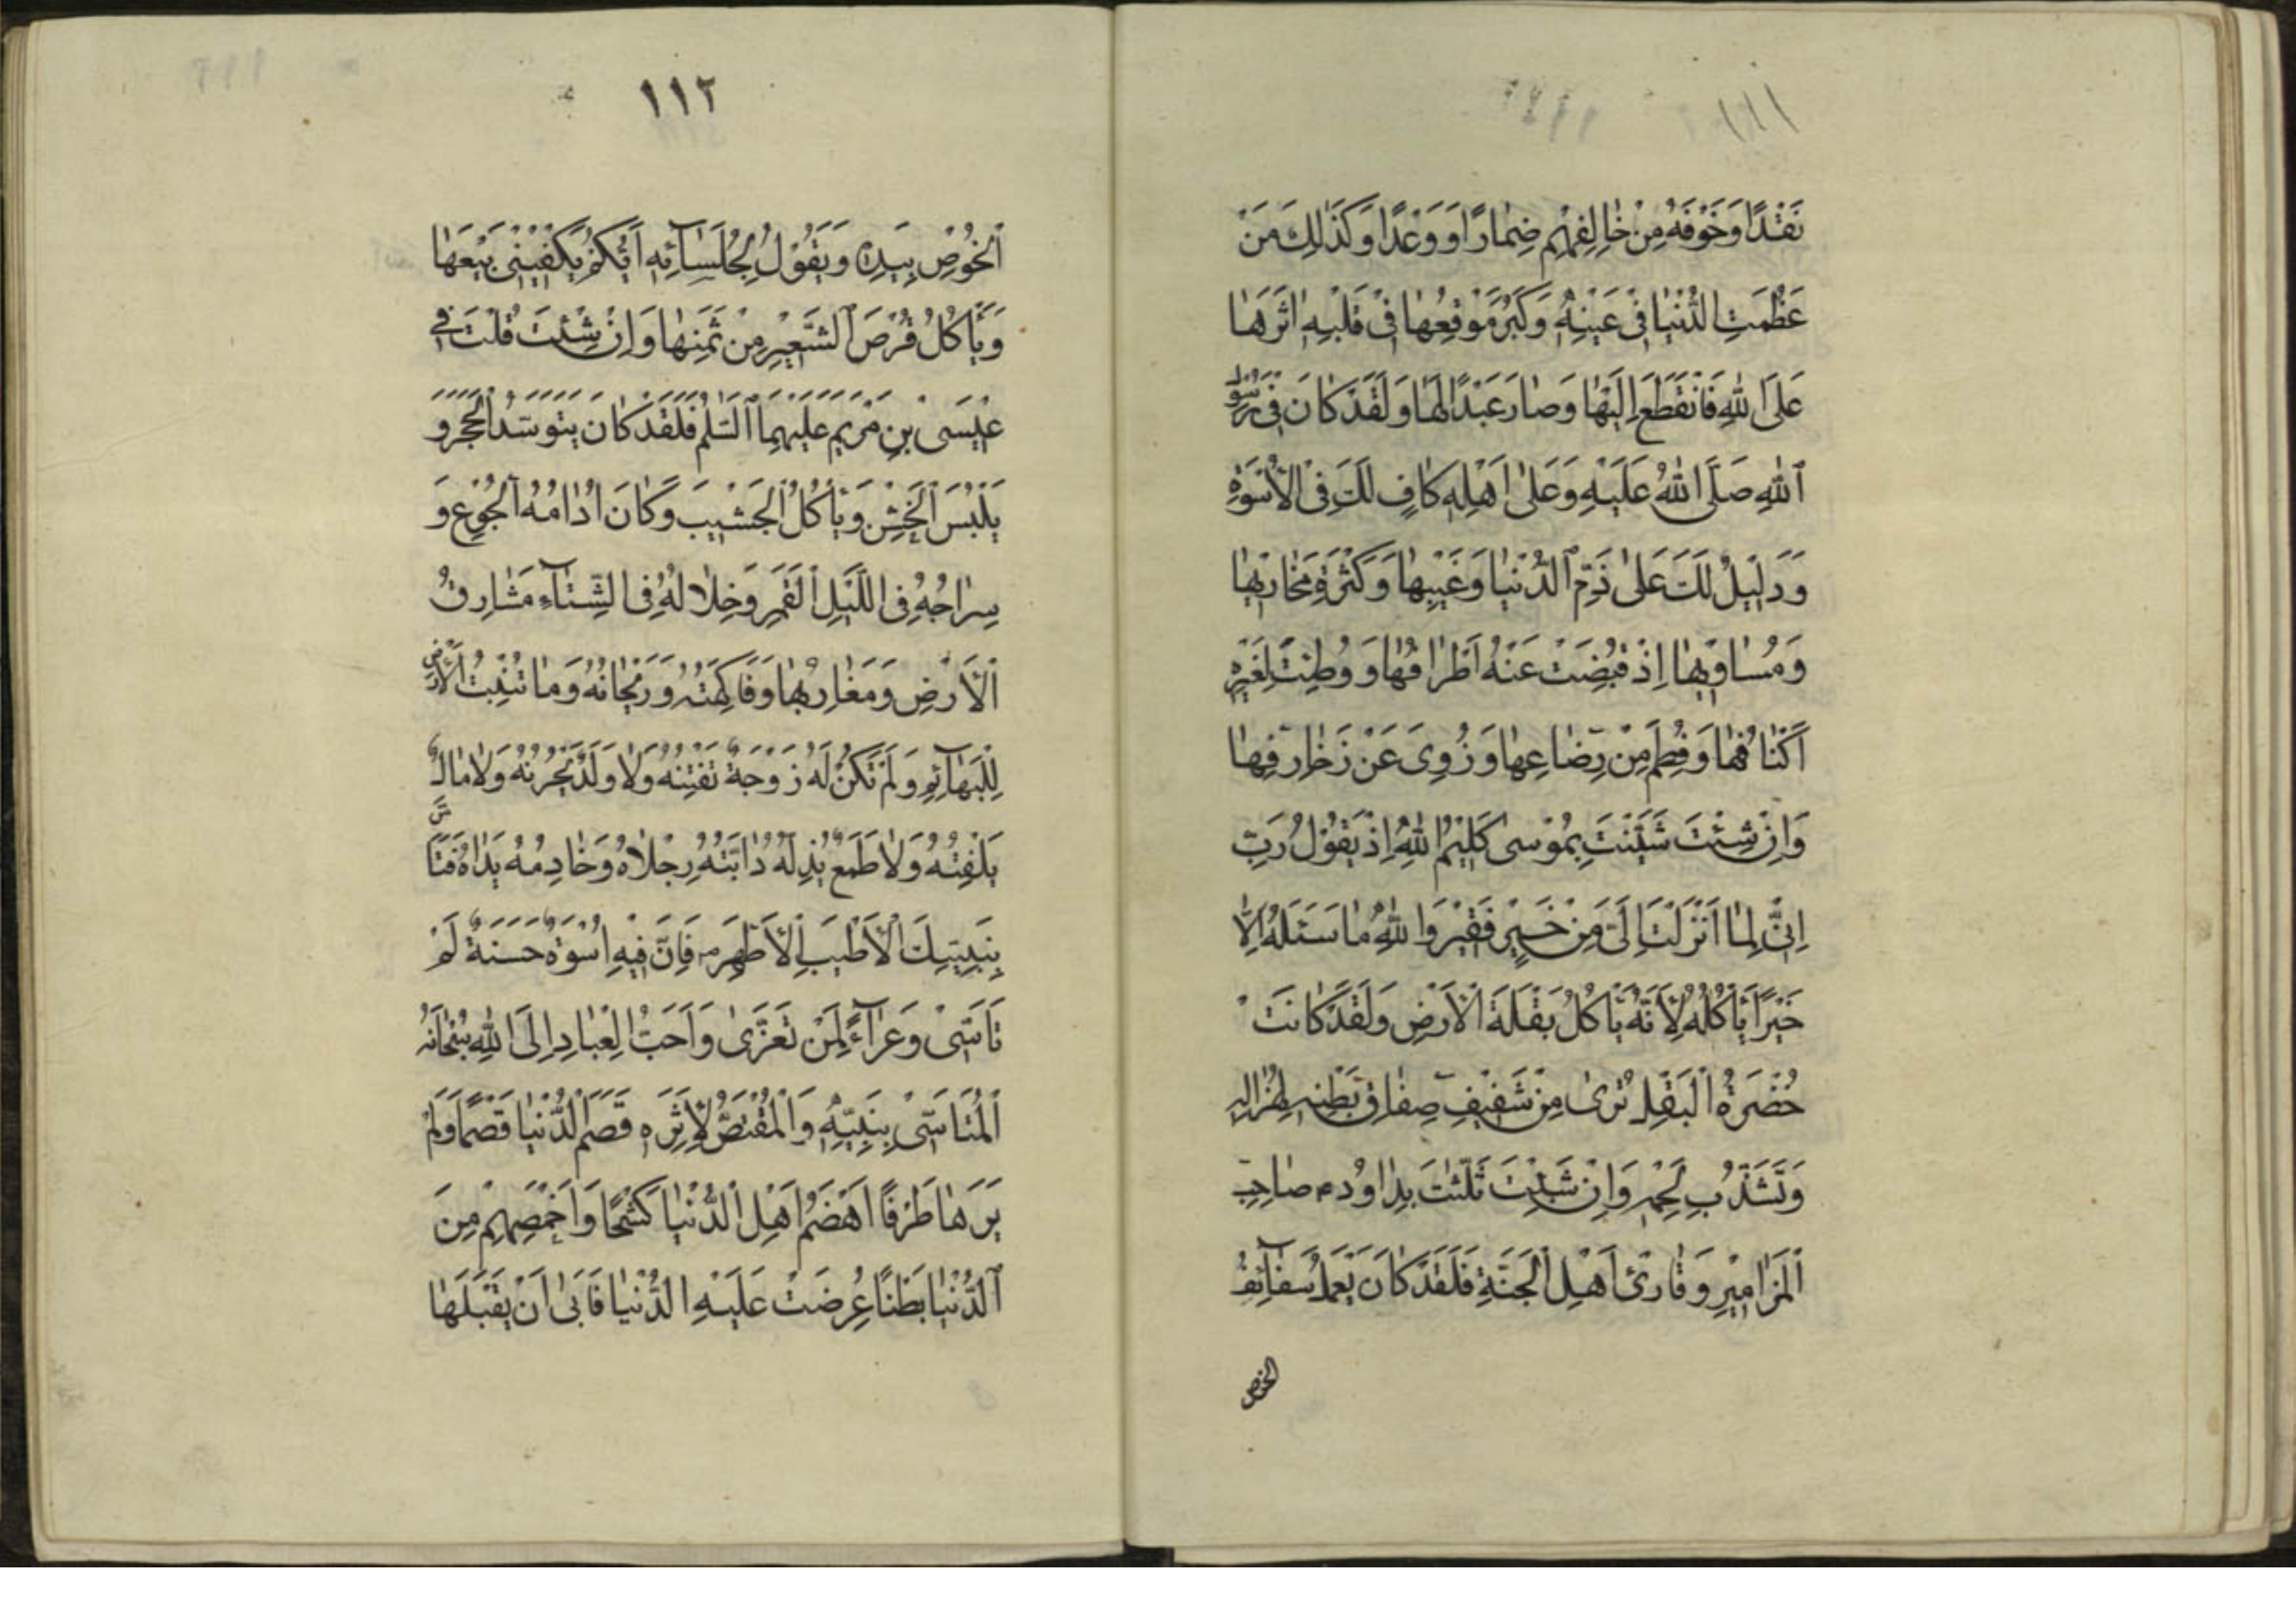 ١١١
نَقْدًا وَخَوْفَهُ مِنْ خَالِقِهِمْ ضِمَارًا وَوَعْدًا وَكَذٰلِكَ مَنْ
عَظُمَتِ الدُّنْيَا فِي عَيْنِهِ وَكَبُرَ مَوْقِعُهَا فِي قَلْبِهِ اٰثَرَهَا
عَلَى اللهِ فَانْقَطَعَ اِلَيْهَا وَصَارَ عَبْدًا لَهَا وَلَقَدْ كَانَ فِي رَسُولِ
اللهِ صَلَّى اللهُ عَلَيْهِ وَعَلٰى اَهْلِهِ كَافٍ لَكَ فِي الْاُسْوَةِ
وَدَلِيْلٌ لَكَ عَلٰى ذَمِّ الدُّنْيَا وَعَيْبِهَا وَكَثْرَةِ مَخَازِيْهَا
وَمَسَاوِيْهَا اِذْ قُبِضَتْ عَنْهُ اَطْرَافُهَا وَوُطِئَتْ لِغَيْرِهِ
اَكْنَافُهَا وَفُطِمَ مِنْ رِضَاعِهَا وَزُوِيَ عَنْ زَخَارِفِهَا
وَاِنْ شِئْتَ ثَنَّيْتَ بِمُوْسٰى كَلِيْمِ اللهِ اِذْ يَقُوْلُ رَبِّ
اِنِّي لِمَا اَنْزَلْتَ اِلَيَّ مِنْ خَيْرٍ فَقِيْرٌ وَاللهِ مَا سَئَلَهُ اِلَّا
خُبْزًا يَأْكُلُهُ لِاَنَّهُ يَأْكُلُ بَقْلَةَ الْاَرْضِ وَلَقَدْ كَانَتْ
خُضْرَةُ الْبَقْلِ تُرٰى مِنْ شَفِيْفِ صِفَاقِ بَطْنِهِ لِهُزَالِهِ
وَتَشَذُّبِ لَحْمِهِ وَاِنْ شِئْتَ ثَلَّثْتَ بِدَاوُدَ م صَاحِبِ
الْمَزَامِيْرِ وَقَارِئِ اَهْلِ الْجَنَّةِ فَلَقَدْ كَانَ يَعْمَلُ سَفَائِفَ
الخوص
١١٢
الْخُوْصِ بِيَدِهٖ وَيَقُوْلُ لِجُلَسَائِهِ اَيُّكُمْ يَكْفِيْنِي بَيْعَهَا
وَيَأْكُلُ قُرْصَ الشَّعِيْرِ مِنْ ثَمَنِهَا وَاِنْ شِئْتَ قُلْتَ فِي
عِيْسَى بْنِ مَرْيَمَ عَلَيْهِمَا السَّلٰمُ فَلَقَدْ كَانَ يَتَوَسَّدُ الْحَجَرَ وَ
يَلْبَسُ الْخَشِنَ وَيَأْكُلُ الْجَشِيْبَ وَكَانَ اِدَامُهُ الْجُوْعَ وَ
سِرَاجُهُ فِي اللَّيْلِ الْقَمَرَ وَظِلَالُهُ فِي الشِّتَاءِ مَشَارِقَ
الْاَرْضِ وَمَغَارِبَهَا وَفَاكِهَتُهُ وَرَيْحَانُهُ وَمَا تُنْبِتُ الْاَرْضُ
لِلْبَهَائِمِ وَلَمْ تَكُنْ لَهُ زَوْجَةٌ تَفْتِنُهُ وَلَا وَلَدٌ يَحْزُنُهُ وَلَا مَالٌ
يَلْفِتُهُ وَلَا طَمَعٌ يُذِلُّهُ دَابَّتُهُ رِجْلَاهُ وَخَادِمُهُ يَدَاهُ فَتَاَسَّ
بِنَبِيِّكَ الْاَطْيَبِ الْاَطْهَرِ فَاِنَّ فِيْهِ اُسْوَةٌ حَسَنَةٌ لِمَنْ
تَاَسّٰى وَعَزَاءً لِمَنْ تَعَزّٰى وَاَحَبُّ الْعِبَادِ اِلَى اللهِ سُبْحَانَهُ
الْمُتَاَسِّي بِنَبِيِّهِ وَالْمُقْتَصُّ لِاَثَرِهِ قَضَمَ الدُّنْيَا قَضْمًا وَلَمْ
يَرَهَا طَرْفًا اَهْضَمُ اَهْلِ الدُّنْيَا كَشْحًا وَاَخْمَصُهُمْ مِنَ
الدُّنْيَا بَطْنًا عُرِضَتْ عَلَيْهِ الدُّنْيَا فَاَبٰى اَنْ يَقْبَلَهَا